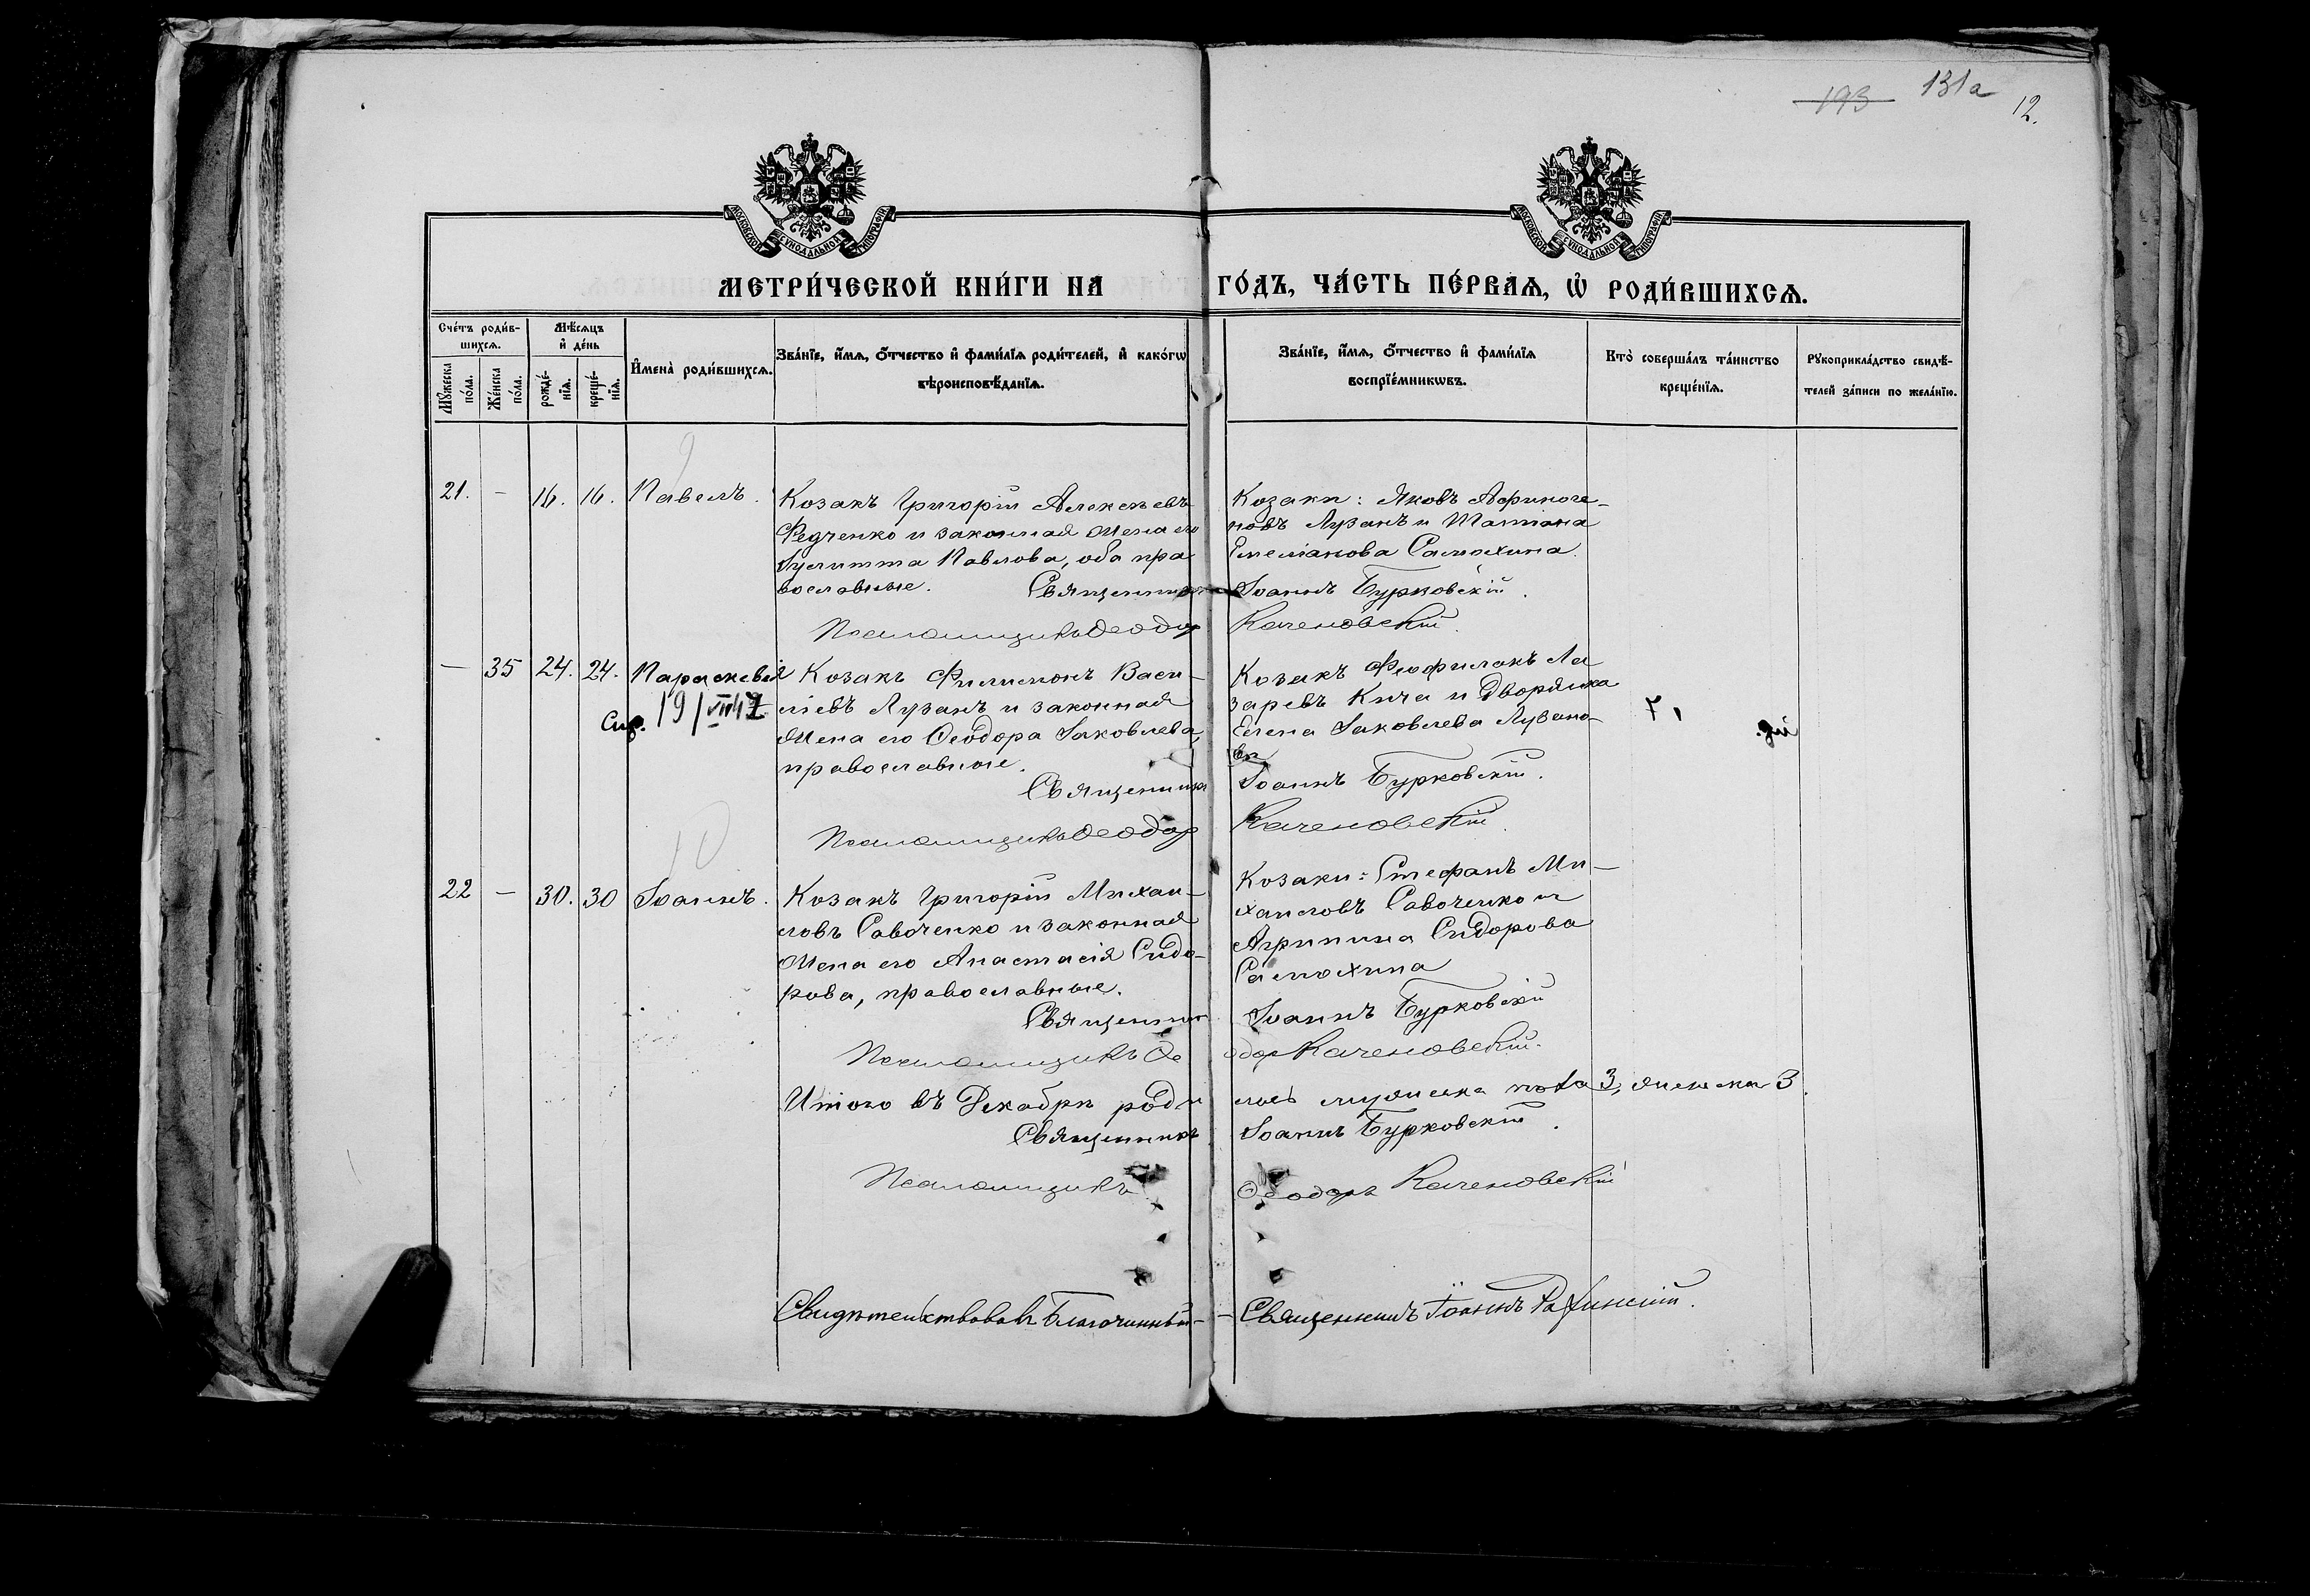 193 131а 12.
МОСКОВСКОЙ СѴНОДАЛЬНОЙ ТИПОГРАФІИ
МОСКОВСКОЙ СѴНОДАЛЬНОЙ ТИПОГРАФІИ
МЕТРИ́ЧЕСКОЙ КНИ́ГИ НА ГО́ДЪ, ЧА́СТЬ ПЕ́РВАѦ, Ѡ҆ РОДИ́ВШИХСѦ.
Сче́тъ роди́в-
шихсѧ.
Мꙋ́жеска по́ла.
Же́нска по́ла.
Мѣ́сѧцъ
и҆ де́нь
рожде́-
нїѧ.
креще́-
нїѧ.
И҆мена̀ роди́вшихсѧ.
Зва́нїе, и҆́мѧ, ѻ҆́тчество и҆ фами́лїѧ роди́телей, и҆ како́гѡ
вѣроисповѣ́данїѧ.
Зва́нїе, и҆́мѧ, ѻ҆́тчество и҆ фами́лїѧ
воспрїе́мникѡвъ.
Кто̀ соверша́лъ та́инство
креще́нїѧ.
Рꙋкоприкла́дство свидѣ́-
телей за́писи по жела́нїю.
9
21. — 16. 16. Павелъ.
Козакъ Григорій Алексѣевъ
Федченко и законная жена его
Іулитта Павлова, оба пра
вославные.
Козаки: Яковъ Афиноге-
новъ Лузанъ и Татіана
Емеліанова Самохина.
Священникъ Іоаннъ Бурковскій.
Псаломщикъ Ѳеодор Каченовскій.
— 35 24. 24. Параскевія
19/VIII 47
Козакъ Филимонъ Васи-
ліевъ Лузанъ и законная
жена его Ѳеодора Іаковлева,
православные.
Козакъ Феофилактъ Ла
заревъ Кича и Дворянка
Елена Іаковлева Лузано-
ва
Священникъ Іоаннъ Бурковскій.
Псаломщикъ Ѳеодор Каченовскій.
10
22 — 30. 30 Іоаннъ.
Козакъ Григорій Михаи-
ловъ Савоченко и законная
жена его Анастасія Сидо-
рова, православные.
Козаки: Стефанъ Ми-
хаиловъ Савоченко и
Агрипина Сидорова
Самохина
Священникъ Іоаннъ Бурковскій
Псаломщикъ Ѳе одор Каченовскій.
Итого въ Декабрѣ роди лось мужеска пола 3, женска 3.
Священникъ Іоаннъ Бурковскій.
Псаломщикъ Ѳеодоръ Каченовскій
Свидѣтельствовалъ Благочинный — Священникъ Іоаннъ